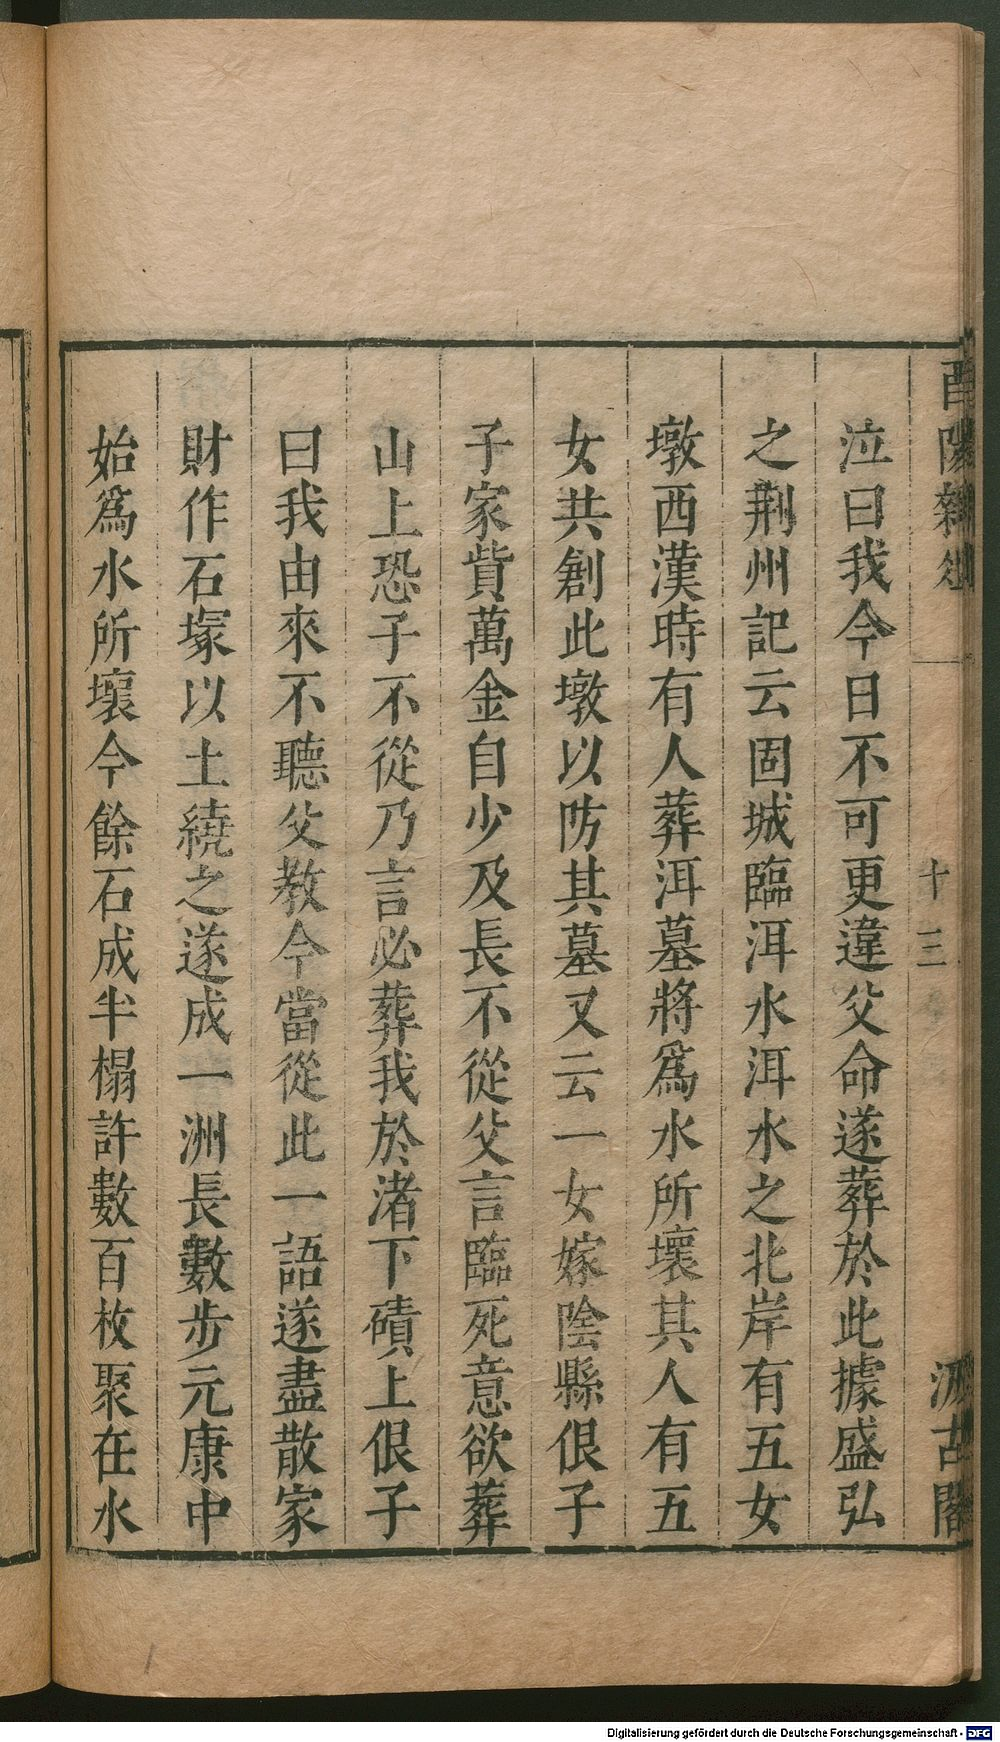 酉陽雜俎
十三
汲古閣
泣曰我今日不可更違父命遂葬於此據盛弘
之荆州記云固城臨洱水洱水之北岸有五女
墩西漢時有人葬洱墓將爲水所壞其人有五
女共創此墩以防其墓又云一女嫁陰縣佷子
子家貲萬金自少及長不從父言臨死意欲葬
山上恐子不從乃言必葬我於渚下磧上佷子
曰我由來不聽父教今當從此一語遂盡散家
財作石塚以土繞之遂成一洲長數步元康中
始爲水所壞今餘石成半榻許數百枚聚在水
Digitalisierung gefördert durch die Deutsche Forschungsgemeinschaft - DFG